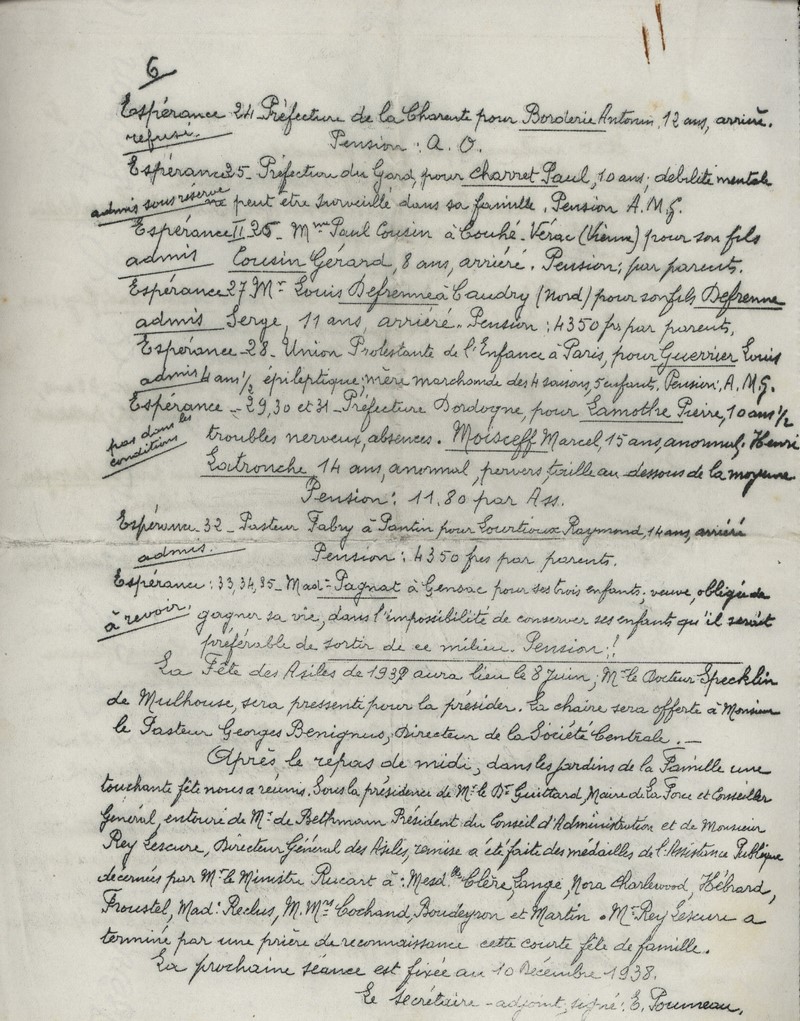 6
Espérance 24 Préfecture de la Charente pour Borderie Antonin, 12 ans, arriéré.
refusé. Pension : A. O.
Espérance 25 - Préfecture du Gard, pour Charret Paul, 10 ans ; débilité mentale
admis sous réserve peut être surveillé dans sa famille. Pension A. M. G.
Espérance II 25 - Mme Paul Cousin à Couhé-Vérac (Vienne) pour son fils
admis Cousin Gérard, 8 ans, arriéré. Pension : par parents.
Espérance 27 Mr Louis Defrenne à Caudry (Nord) pour son fils Defrenne
admis Serge, 11 ans, arriéré. Pension : 4350 frs par parents.
Espérance 28 - Union Protestante de l'Enfance à Paris, pour Guerrier Louis
admis 4 ans 1/2 épileptique, mère marchande des 4 saisons, 5 enfants. Pension : A. M. G.
Espérance - 29, 30 et 31 - Préfecture Dordogne, pour Lamothe Pierre, 10 ans 1/2
pas dans les conditions troubles nerveux, absences. Moisceff Marcel, 15 ans, anormal. Henri
Latronche 14 ans, anormal, pervers, taille au-dessous de la moyenne
Pension : 11,80 par Ass.
Espérance 32 - Pasteur Fabry à Pantin pour Lourtioux Raymond, 14 ans, arriéré
admis. Pension : 4350 frcs par parents.
Espérance : 33, 34, 35 - Mad. Pagnat à Gensac pour ses trois enfants, veuve, obligée de
à revoir. gagner sa vie, dans l'impossibilité de conserver ses enfants qu'il serait
préférable de sortir de ce milieu. Pension :!
La Fête des Asiles de 1939 aura lieu le 8 Juin ; Mr le Docteur Specklin
de Mulhouse, sera pressenti pour la présider. La chaire sera offerte à Monsieur
le Pasteur Georges Benignus, Directeur de la Société Centrale. -
Après le repas de midi, dans les jardins de la Famille une
touchante fête nous a réunis. Sous la présidence de Mr le Dr Guittard, Maire de La Force et Conseiller
Général, entouré de Mr de Bethmann Président du Conseil d'Administration et de Monsieur
Rey Lescure, Directeur Général des Asiles, remise a été faite des médailles de l'Assistance Publique
décernées par Mr le Ministre Rucart à : Mesd.lles Clère, Lange, Nora Charlewood, Hébrard,
Froustel, Mad. Reclus, M. Mme Cochand, Boudeyron et Martin. Mr Rey Lescure a
terminé par une prière de reconnaissance cette courte fête de famille.
La prochaine séance est fixée au 10 Décembre 1938.
Le secrétaire - adjoint, signé : E. Poumeau.